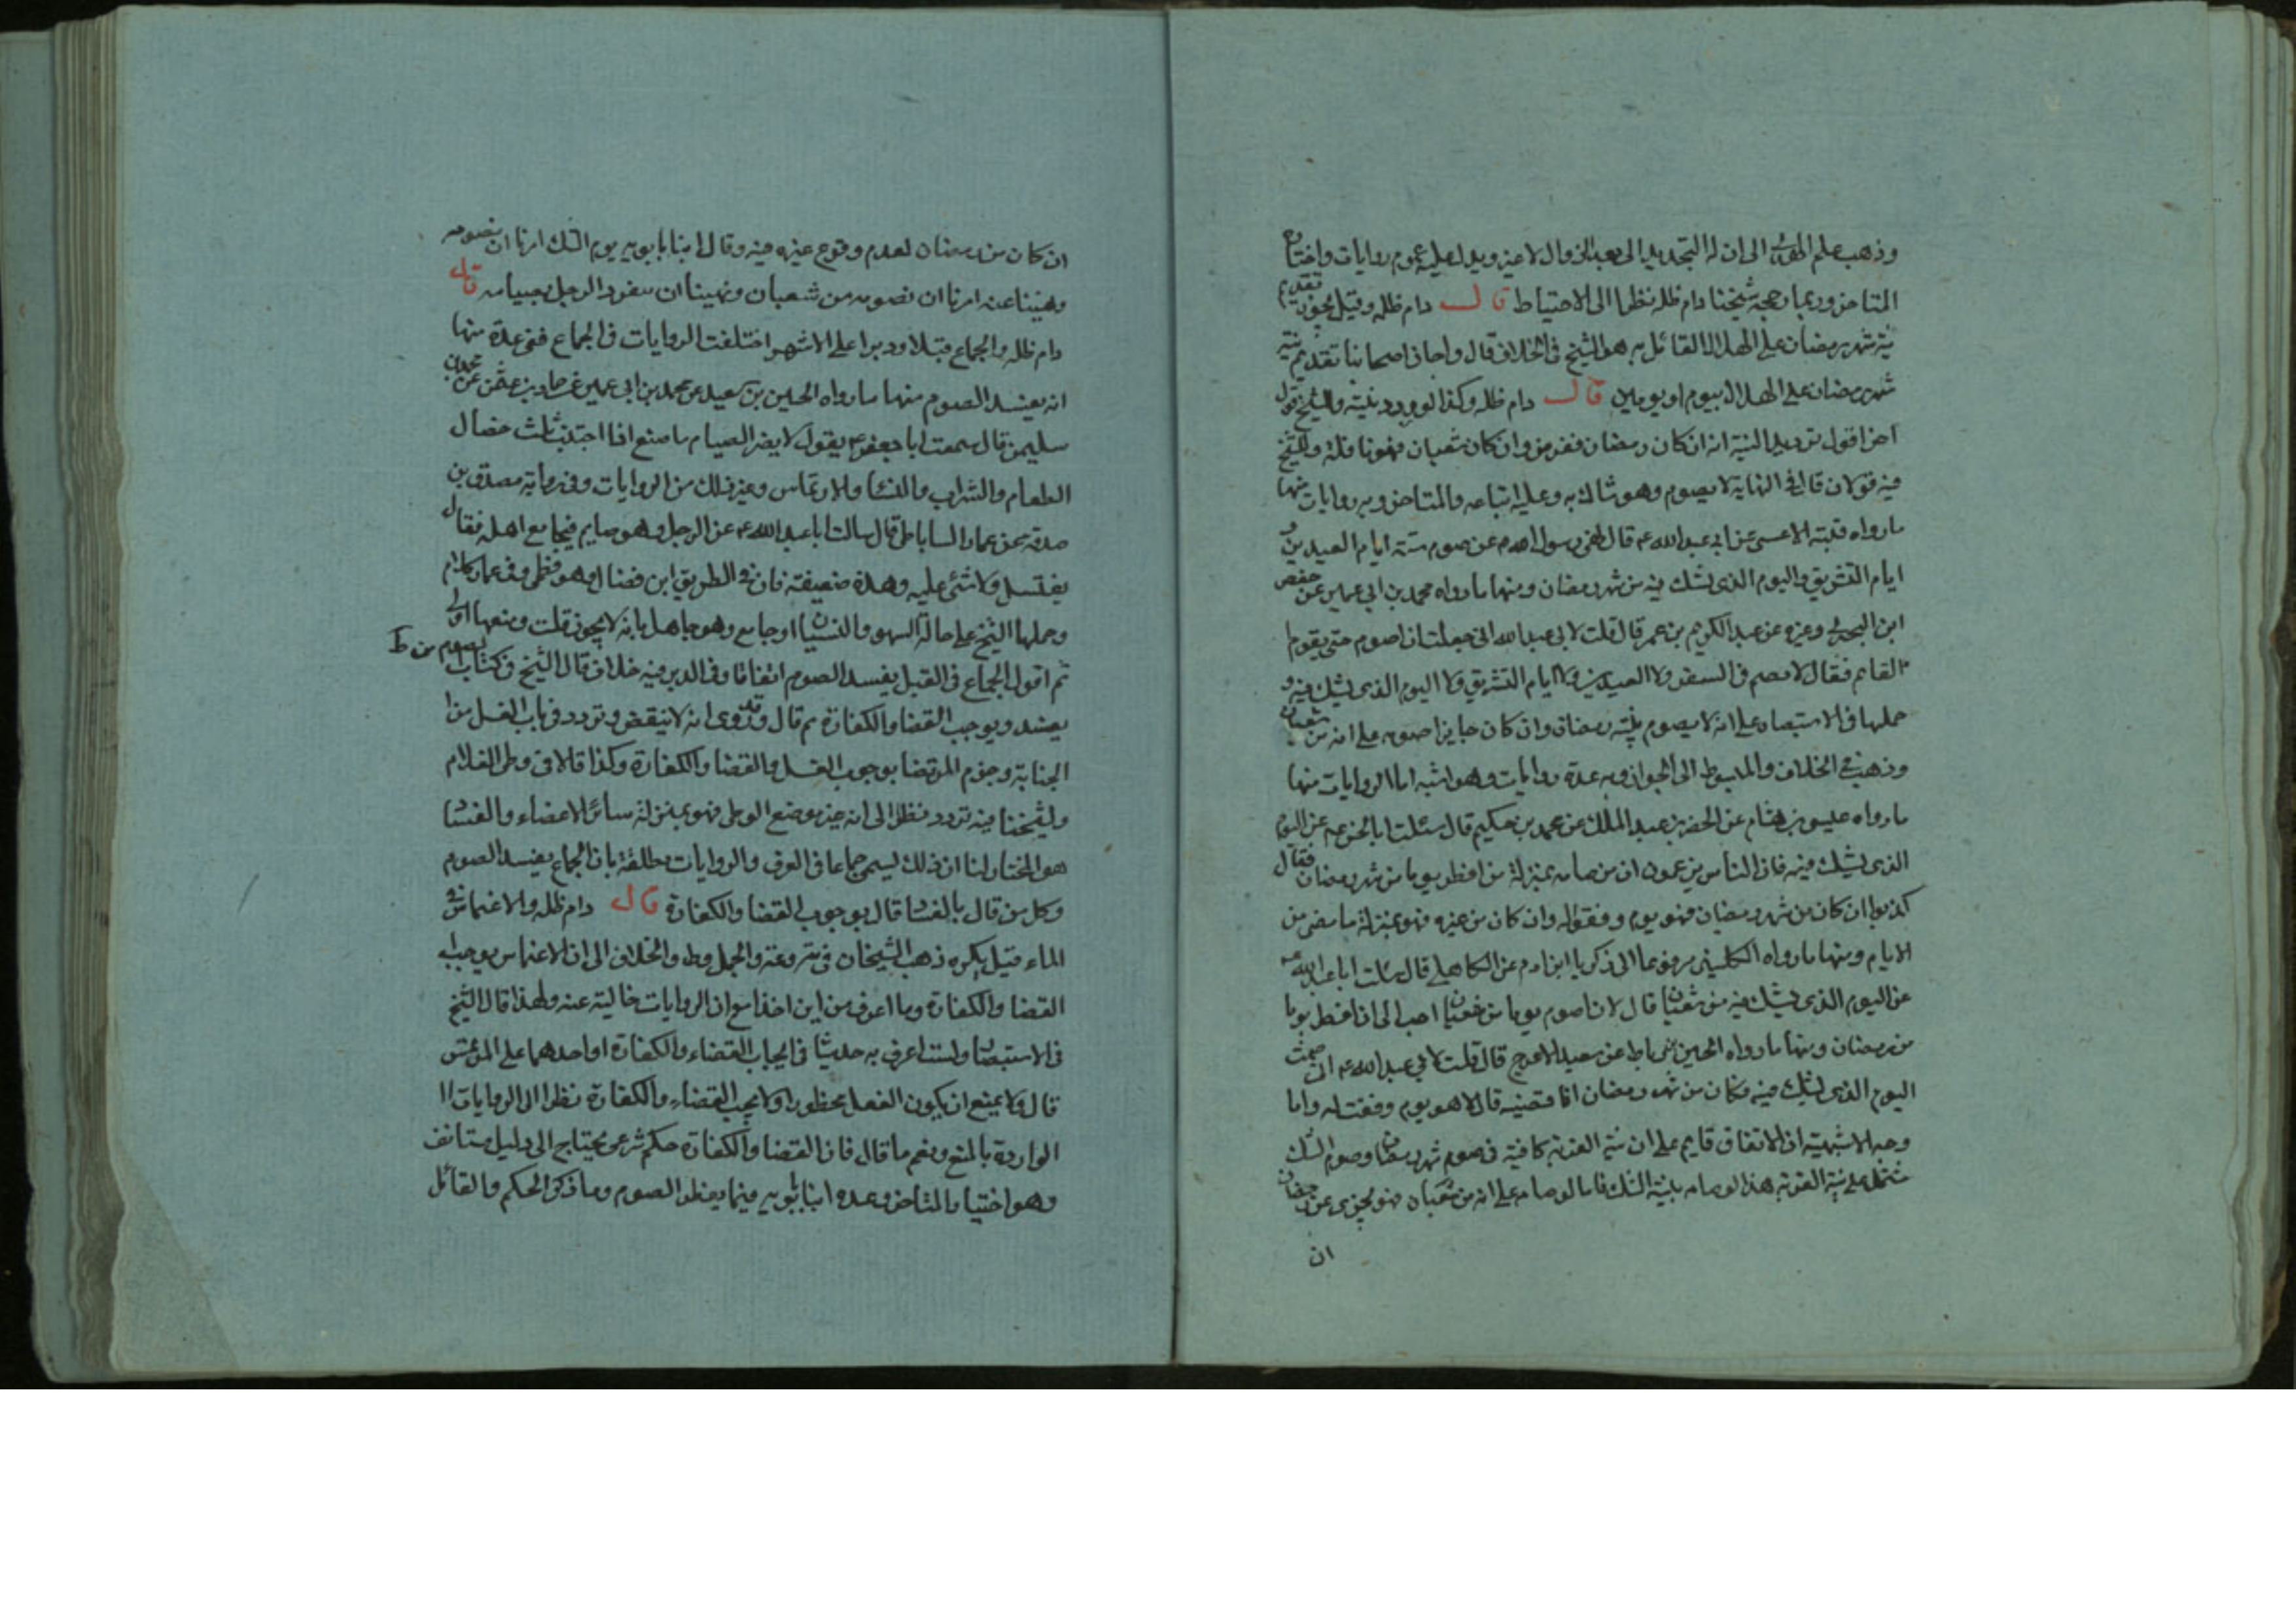 وذهب علم الهدى الى ان له التجديد الى بعد الزوال لا غير ويدل عليه عموم روايات واختاره
المتاخر وربما رجحه شيخنا دام ظله نظرا الى الاحتياط قال دام ظله وقيل يجوز تقديم
نية شهر رمضان على الهلال القائل به هو الشيخ في الخلاف قال واجاز اصحابنا تقديم نية
شهر رمضان على الهلال بيوم او يومين قال دام ظله وكذا لو ردد نيته وللشيخ قول
اخر اقول ترديد النية انه ان كان رمضان ففرض وان كان شعبان فهو نافلة وللشيخ
فيه قولان قال في النهاية لا يصوم وهو شاك به وعليه اتباعه والمتاخر وبه روايات منها
ما رواه قتيبة الاعشى عن ابي عبد الله ع قال نهى رسول الله ص عن صوم ستة ايام العيدين و
ايام التشريق واليوم الذي تشك فيه من شهر رمضان ومنها ما رواه محمد بن ابي عمير عن حفص
ابن البختري وغيره عن عبد الكريم بن عمر قال قلت لابي عبد الله اني جعلت ان اصوم حتى يقوم
القايم فقال لا تصم في السفر ولا العيدين ولا ايام التشريق ولا اليوم الذي يشك فيه و
حملها في الاستبصار على انه لا يصوم بنية رمضان وان كان جايزا صومه على انه من شعبان
وذهب في الخلاف والمبسوط الى الجواز وبه عدة روايات وهو اشبه اما الروايات منها
ما رواه عيسى بن هشام عن الخضر بن عبد الملك عن محمد بن حكيم قال سئلت ابا الحسن ع عن اليوم
الذي يشك فيه فان الناس يزعمون ان من صامه بمنزلة من افطر يوما من شهر رمضان فقال
كذبوا ان كان من شهر رمضان فهو يوم وفقوا له وان كان من غيره فهو بمنزلة ما مضى من
الايام ومنها ما رواه الكليني مرفوعا الى زكريا ابن ادم عن الكاهلي قال سالت ابا عبد الله ع
عن اليوم الذي يشك فيه من شعبان قال لان اصوم يوما من شعبان احب الى ان افطر يوما
من رمضان ومنها ما رواه الحسين بن رباط عن سعيد الاعرج قال قلت لابي عبد الله ع اني صمت
اليوم الذي يشك فيه فكان من شهر رمضان افاقضيه قال لا هو يوم وفقت له واما
وجه الاشبهية ان الاتفاق قايم على ان نية القربة كافية في صوم شهر رمضان وصوم الشك
مشتمل على نية القربة هذا لو صامه بنية الشك فاما لو صامه على انه من شعبان فهو يجزي عن رمضان
ان
ان كان من رمضان لعدم وقوع غيره فيه وقال ابنا بابويه يوم الشك امرنا ان نصومه
ونهينا عنه امرنا ان نصومه من شعبان ونهينا ان ينفرد الرجل بصيامه قال
دام ظله والجماع قبلا ودبرا على الاشهر اختلفت الروايات في الجماع ففي عدة منها
انه يفسد الصوم منها ما رواه الحسين بن سعيد عن محمد بن ابي عمير عن حماد بن عثمن عن محمد بن
سليمن قال سمعت ابا جعفر ع يقول لا يضر الصيام ما صنع اذا اجتنب ثلث خصال
الطعام والشراب والنسا والارتماس وغير ذلك من الروايات وفي رواية مصدق بن
صدقة عن عمار الساباطي قال سالت ابا عبد الله ع عن الرجل وهو صايم فيجامع اهله فقال
يغتسل ولا شئ عليه وهذه ضعيفة فان في الطريق ابن فضال وهو فطحي وفي عمار كلام
وحملها الشيخ على حالة السهو والنسيان او جامع وهو جاهل بانه لا يجوز قلت ومنعها اولى
ثم اقول الجماع في القبل يفسد الصوم اتفاقا وفي الدبر فيه خلاف قال الشيخ في كتاب الصوم من ط
يفسد ويوجب القضا والكفارة ثم قال وقد روى انه لا ينقض وتردد في باب الغسل من
الجنابة وجزم المرتضا بوجوب الغسل والقضا والكفارة وكذا قالا في وطى الغلام
ولشيخنا فيه تردد نظرا الى انه غير موضع الوطى فهو بمنزلة سائر الاعضاء والفساد
هو المختار لنا ان ذلك ليسمى جماعا في العرف والروايات مطلقة بان الجماع يفسد الصوم
وكل من قال بالفساد قال بوجوب القضا والكفارة قال دام ظله والاغتماس في
الماء قيل يكره ذهب الشيخان في والجمل وط والخلاف الى ان الاغتماس يوجب
القضا والكفارة وما اعرف من اين اخذا مع ان الروايات خالية عنه ولهذا قال الشيخ
في الاستبصار ولست اعرف به حديثا في ايجاب القضاء والكفارة او احدهما على المرتمس
قال ولا يمنع ان يكون الفعل محظورا ولا يجب القضاء والكفارة نظرا الى الروايات
الواردة بالمنع ونعم ما قال فان القضا والكفارة حكم شرعي يحتاج الى دليل مستانف
وهو اختيار المتاخر وعده ابنا بابويه فيما يفطر الصوم وما ذكرا الحكم والقائل